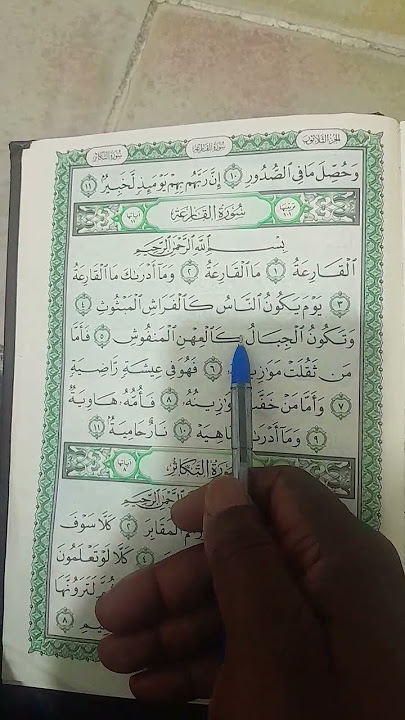 الجزء الثلاثون سورة القارعة سورة التكاثر
وَحُصِّلَ مَا فِي ٱلصُّدُورِ ١٠ إِنَّ رَبَّهُم بِهِمْ يَوْمَئِذٍ لَّخَبِيرٌۢ ١١
سُورَةُ القَارِعَة
بِسْمِ ٱللَّهِ ٱلرَّحْمَٰنِ ٱلرَّحِيمِ
ٱلْقَارِعَةُ ١ مَا ٱلْقَارِعَةُ ٢ وَمَآ أَدْرَىٰكَ مَا ٱلْقَارِعَةُ
٣ يَوْمَ يَكُونُ ٱلنَّاسُ كَٱلْفَرَاشِ ٱلْمَبْثُوثِ ٤
وَتَكُونُ ٱلْجِبَالُ كَٱلْعِهْنِ ٱلْمَنفُوشِ ٥ فَأَمَّا
مَن ثَقُلَتْ ٦ فَهُوَ فِي عِيشَةٍ رَّاضِيَةٍ
٧ وَأَمَّا مَنْ خَفَّتْ ٨ فَأُمُّهُۥ هَاوِيَةٌ
٩ وَمَآ مَا هِيَهْ ١٠ نَارٌ حَامِيَةٌۢ ١١
سُورَةُ التَّكَاثُر
ٱلرَّحْمَٰنِ ٱلرَّحِيمِ
ٱلْمَقَابِرَ ٢ كَلَّا سَوْفَ
٤ كَلَّا لَوْ تَعْلَمُونَ
لَتَرَوُنَّهَا
٨